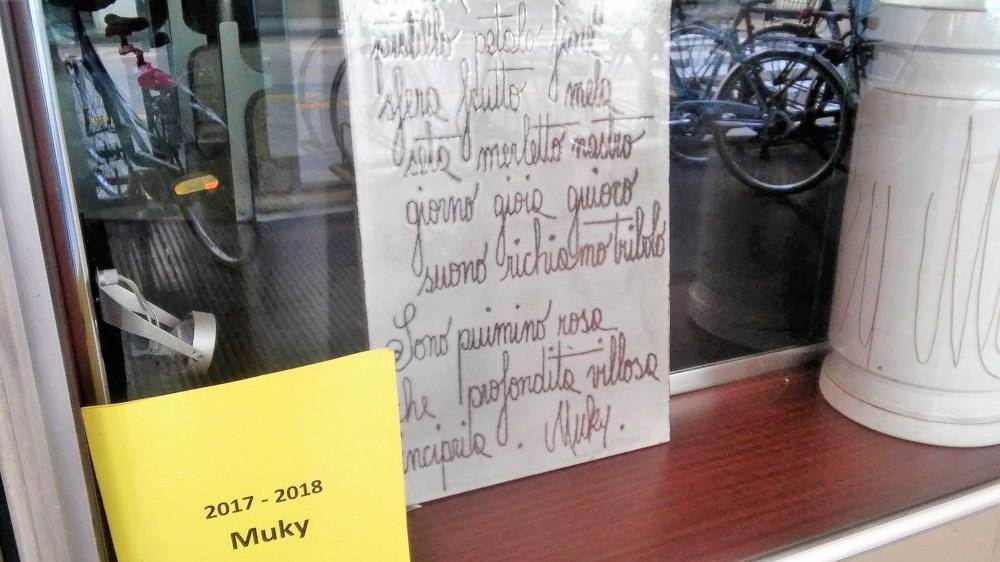 petalo
sfera frutto mela
seta merletto nastro
giorno gioia guioco
suono richiamo tribolo
Sono puimino rosa
che profondità villosa
incipria . Muky.
2017 - 2018
Muky